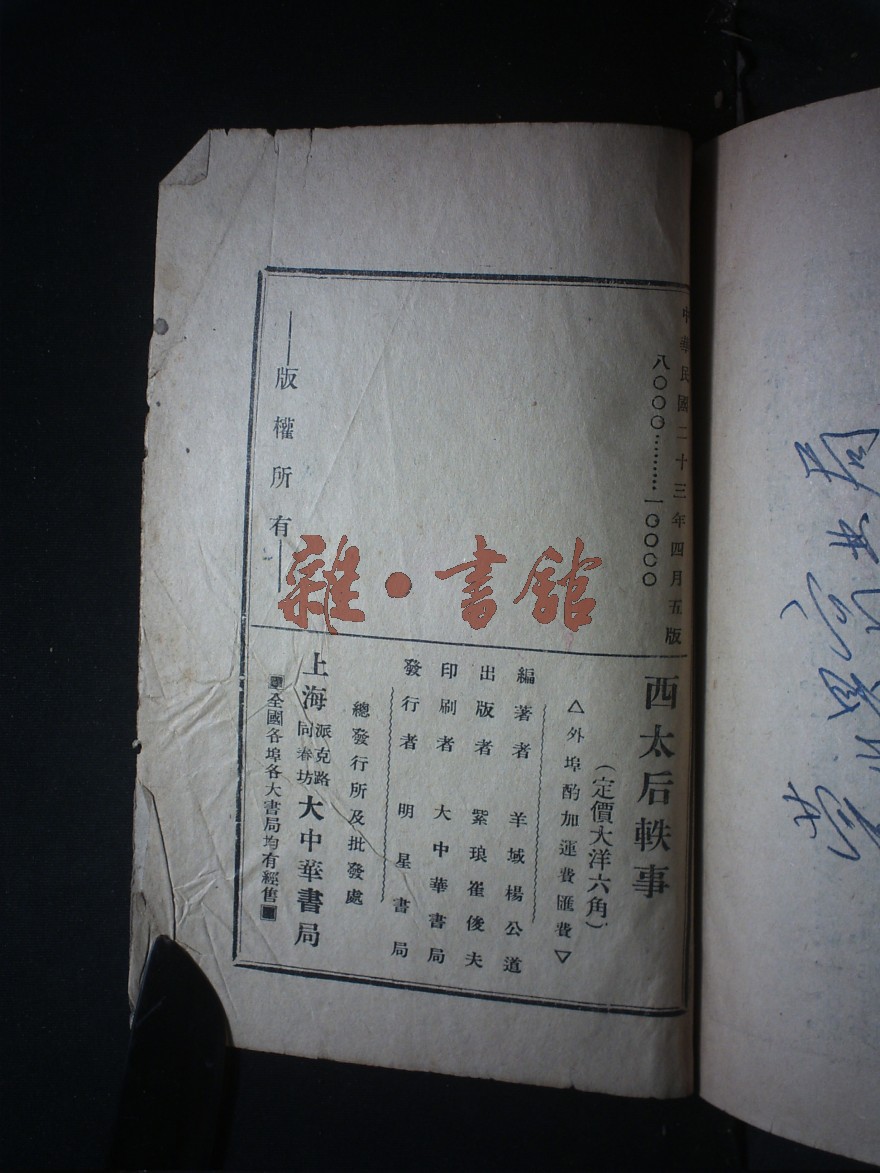 中華民國二十三年四月五版
八〇〇〇……一〇〇〇〇
——版權所有——
西太后軼事
（定價大洋六角）
△外埠酌加運費匯費▽
編著者 羊城楊公道
出版者 紫琅崔俊夫
印刷者 大中華書局
發行者 明星書局
總發行所及批發處
上海派克路同春坊大中華書局
全國各埠各大書局均有經售
雜·書館